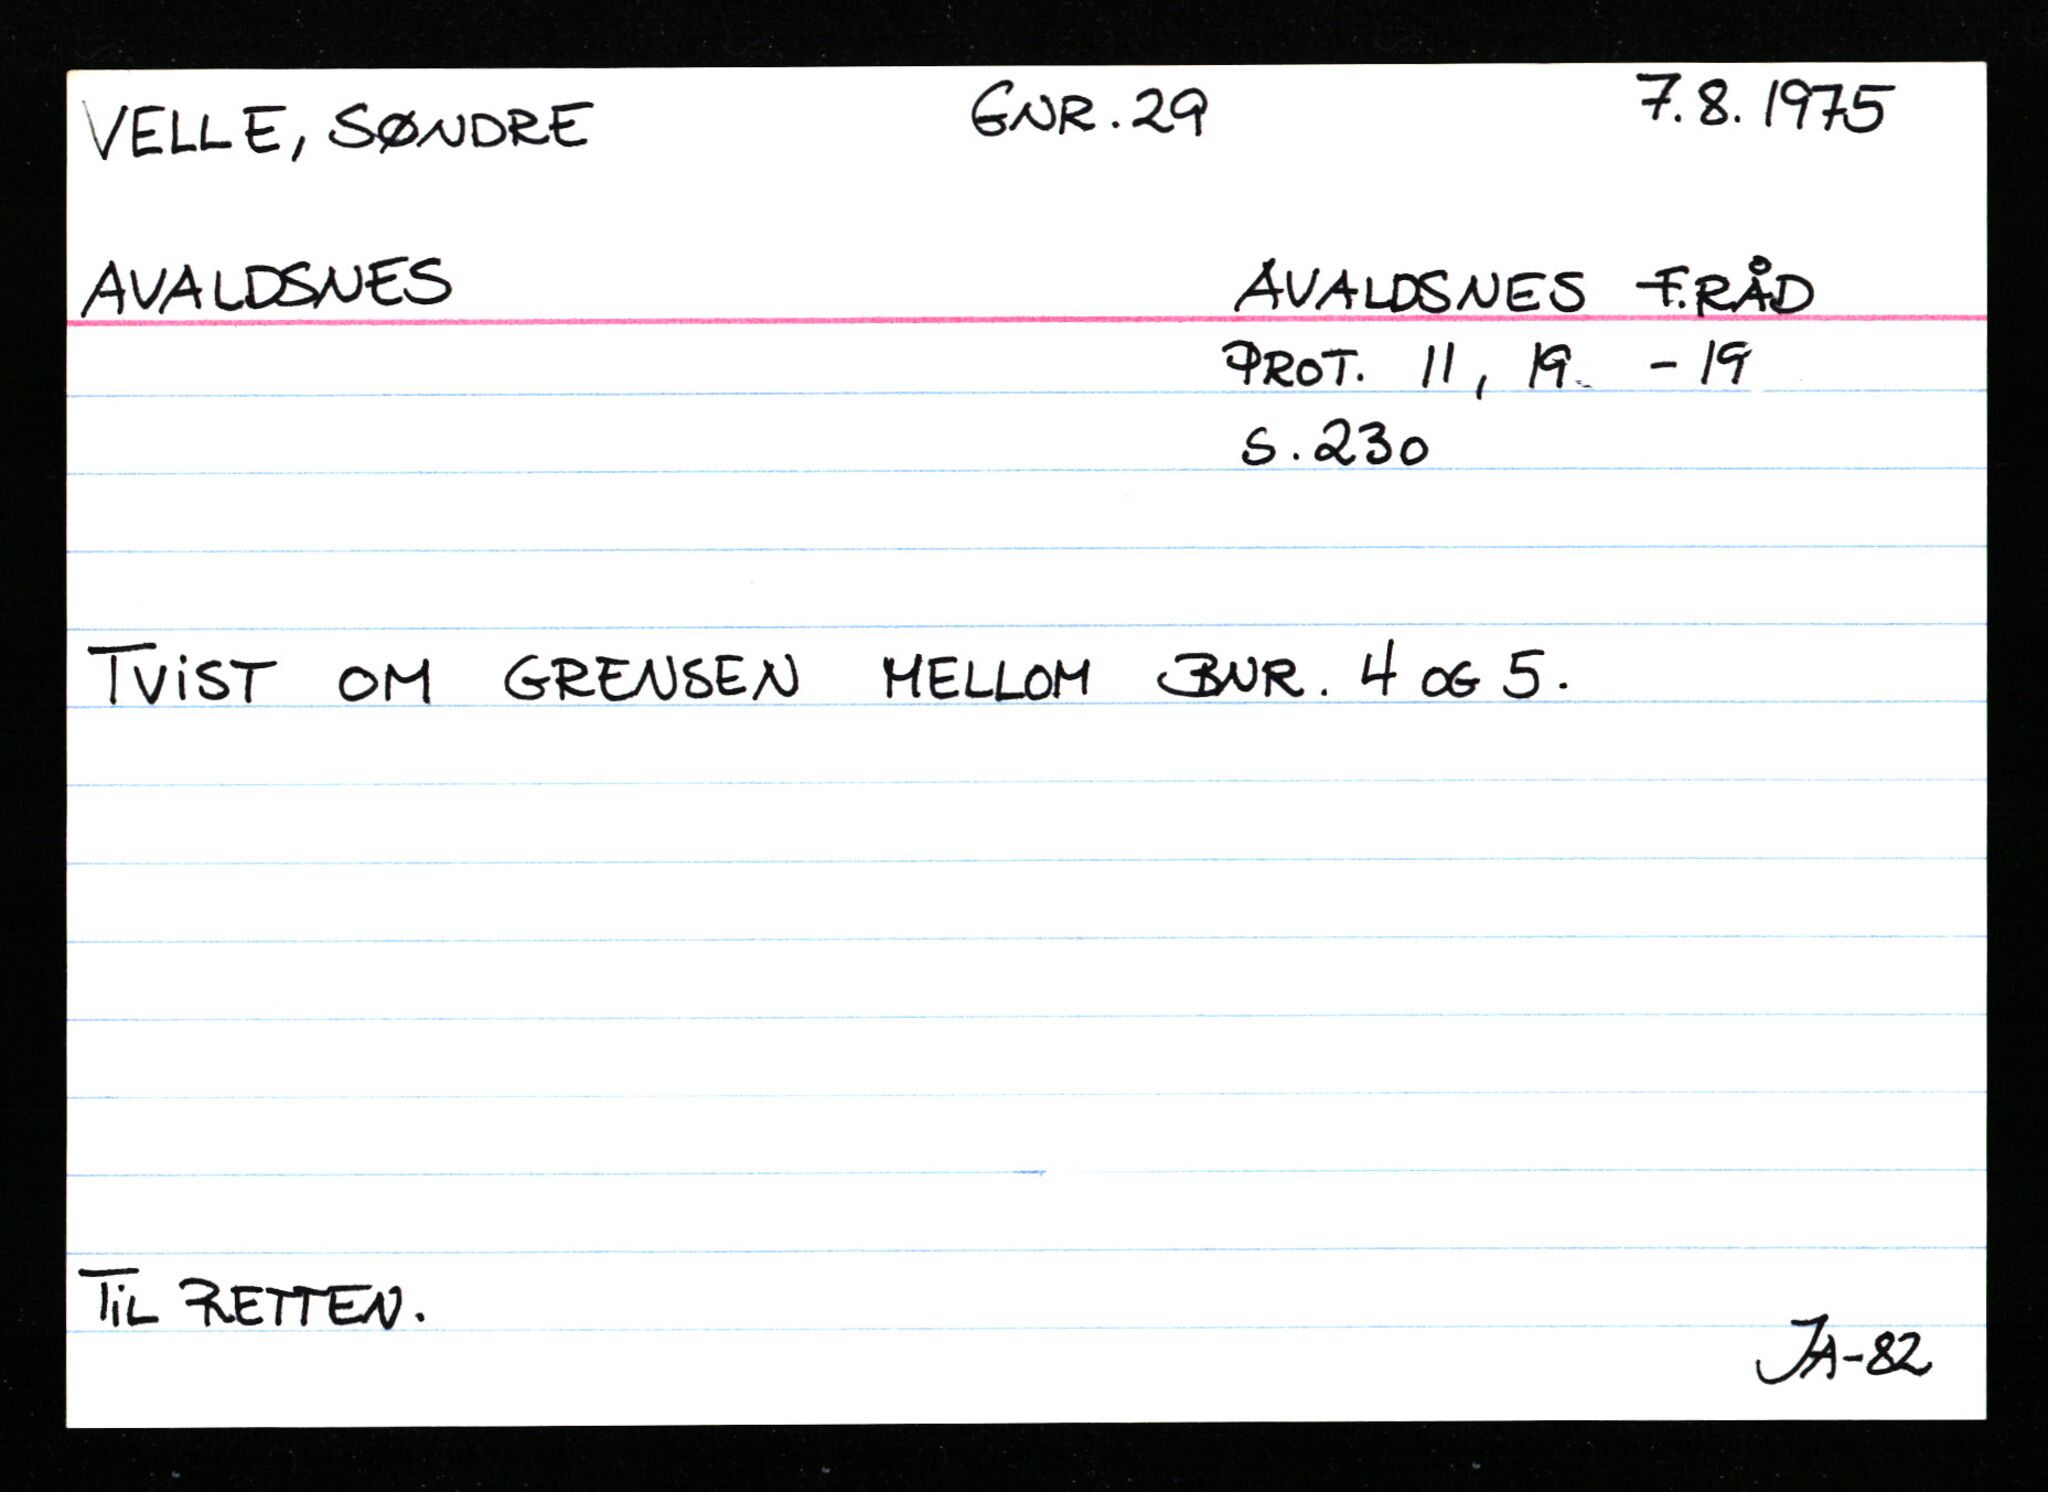 VELLE, SØNDRE GNR. 29 7.8.1975
AVALDSNES AVALDSNES F.RÅD
PROT. 11, 19 - 19
S. 230
TVIST OM GRENSEN MELLOM BNR. 4 OG 5.
TIL RETTEN.
JA-82